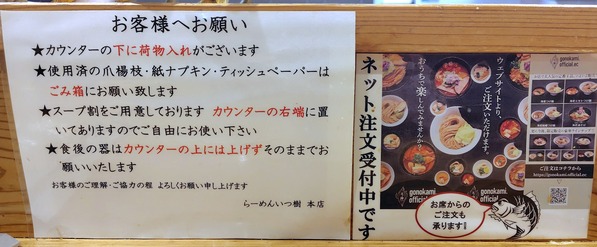 お客様へお願い
★カウンターの下に荷物入れがございます
★使用済の爪楊枝・紙ナプキン・ティッシュペーパーは
ごみ箱にお願い致します
★スープ割をご用意しております カウンターの右端に置
いてありますのでご自由にお使い下さい
★食後の器はカウンターの上には上げずそのままでお
願いいたします
お客様のご理解・ご協力の程 よろしくお願い申し上げます
らーめんいつ樹 本店
ネット注文受付中です
ウェブサイトより、
ご注文いただけます。
おうちで楽しんでみませんか
gonokami_
official.ec
gonokami_
official.
gonokami_
official.
ご注文はコチラから
https://gonokami.official.ec
お席からの
ご注文も
承ります